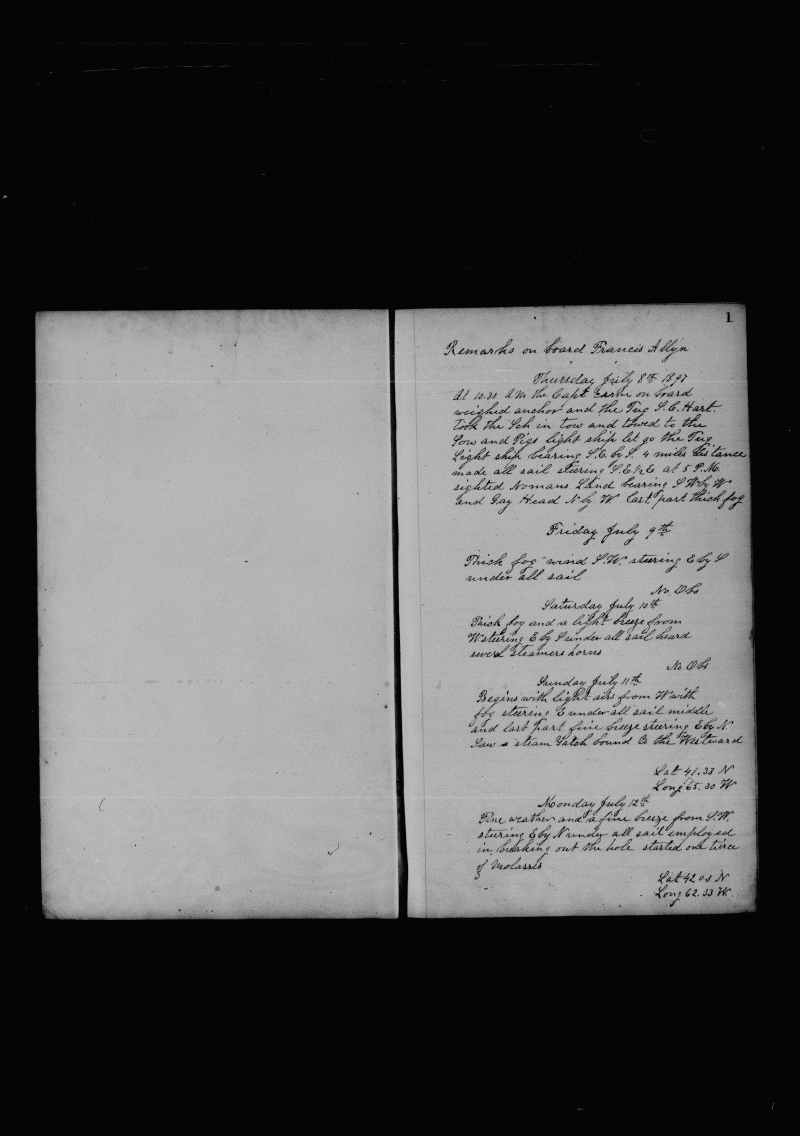 1
Remarks on board Francis Allyn
Thursday July 8th 1897
At 10.30 A.M. the Capt came on board
weighed anchor and the Tug S. C. Hart.
took the Sch in tow and towed to the
Sow and Pigs light ship let go the Tug
Light ship bearing S.E. by S. 4 miles distance
made all sail steering S.E 1/2 E at 5 P.M.
sighted Nomans Land bearing S W by W
and Gay Head N by W last part thick fog
Friday July 9th
Thick fog wind S.W. steering E by S
under all sail
No Obs
Saturday July 10th
Thick fog and a light breeze from
W steering E by S under all sail heard
severl steamers horns
No Obs
Sunday July 11th
Begins with light airs from W with
fog steering E under all sail middle
and last part fine breeze steering E by N.
Saw a steam Yatch bound to the Westward
Lat 41.33 N
Long 65.30 W
Monday July 12th
Fine weather and a fine breeze from S.W.
steering E by N under all sail employed
in breaking out the hole started one tierce
of Molasses
Lat 42 03 N
Long 62.33 W